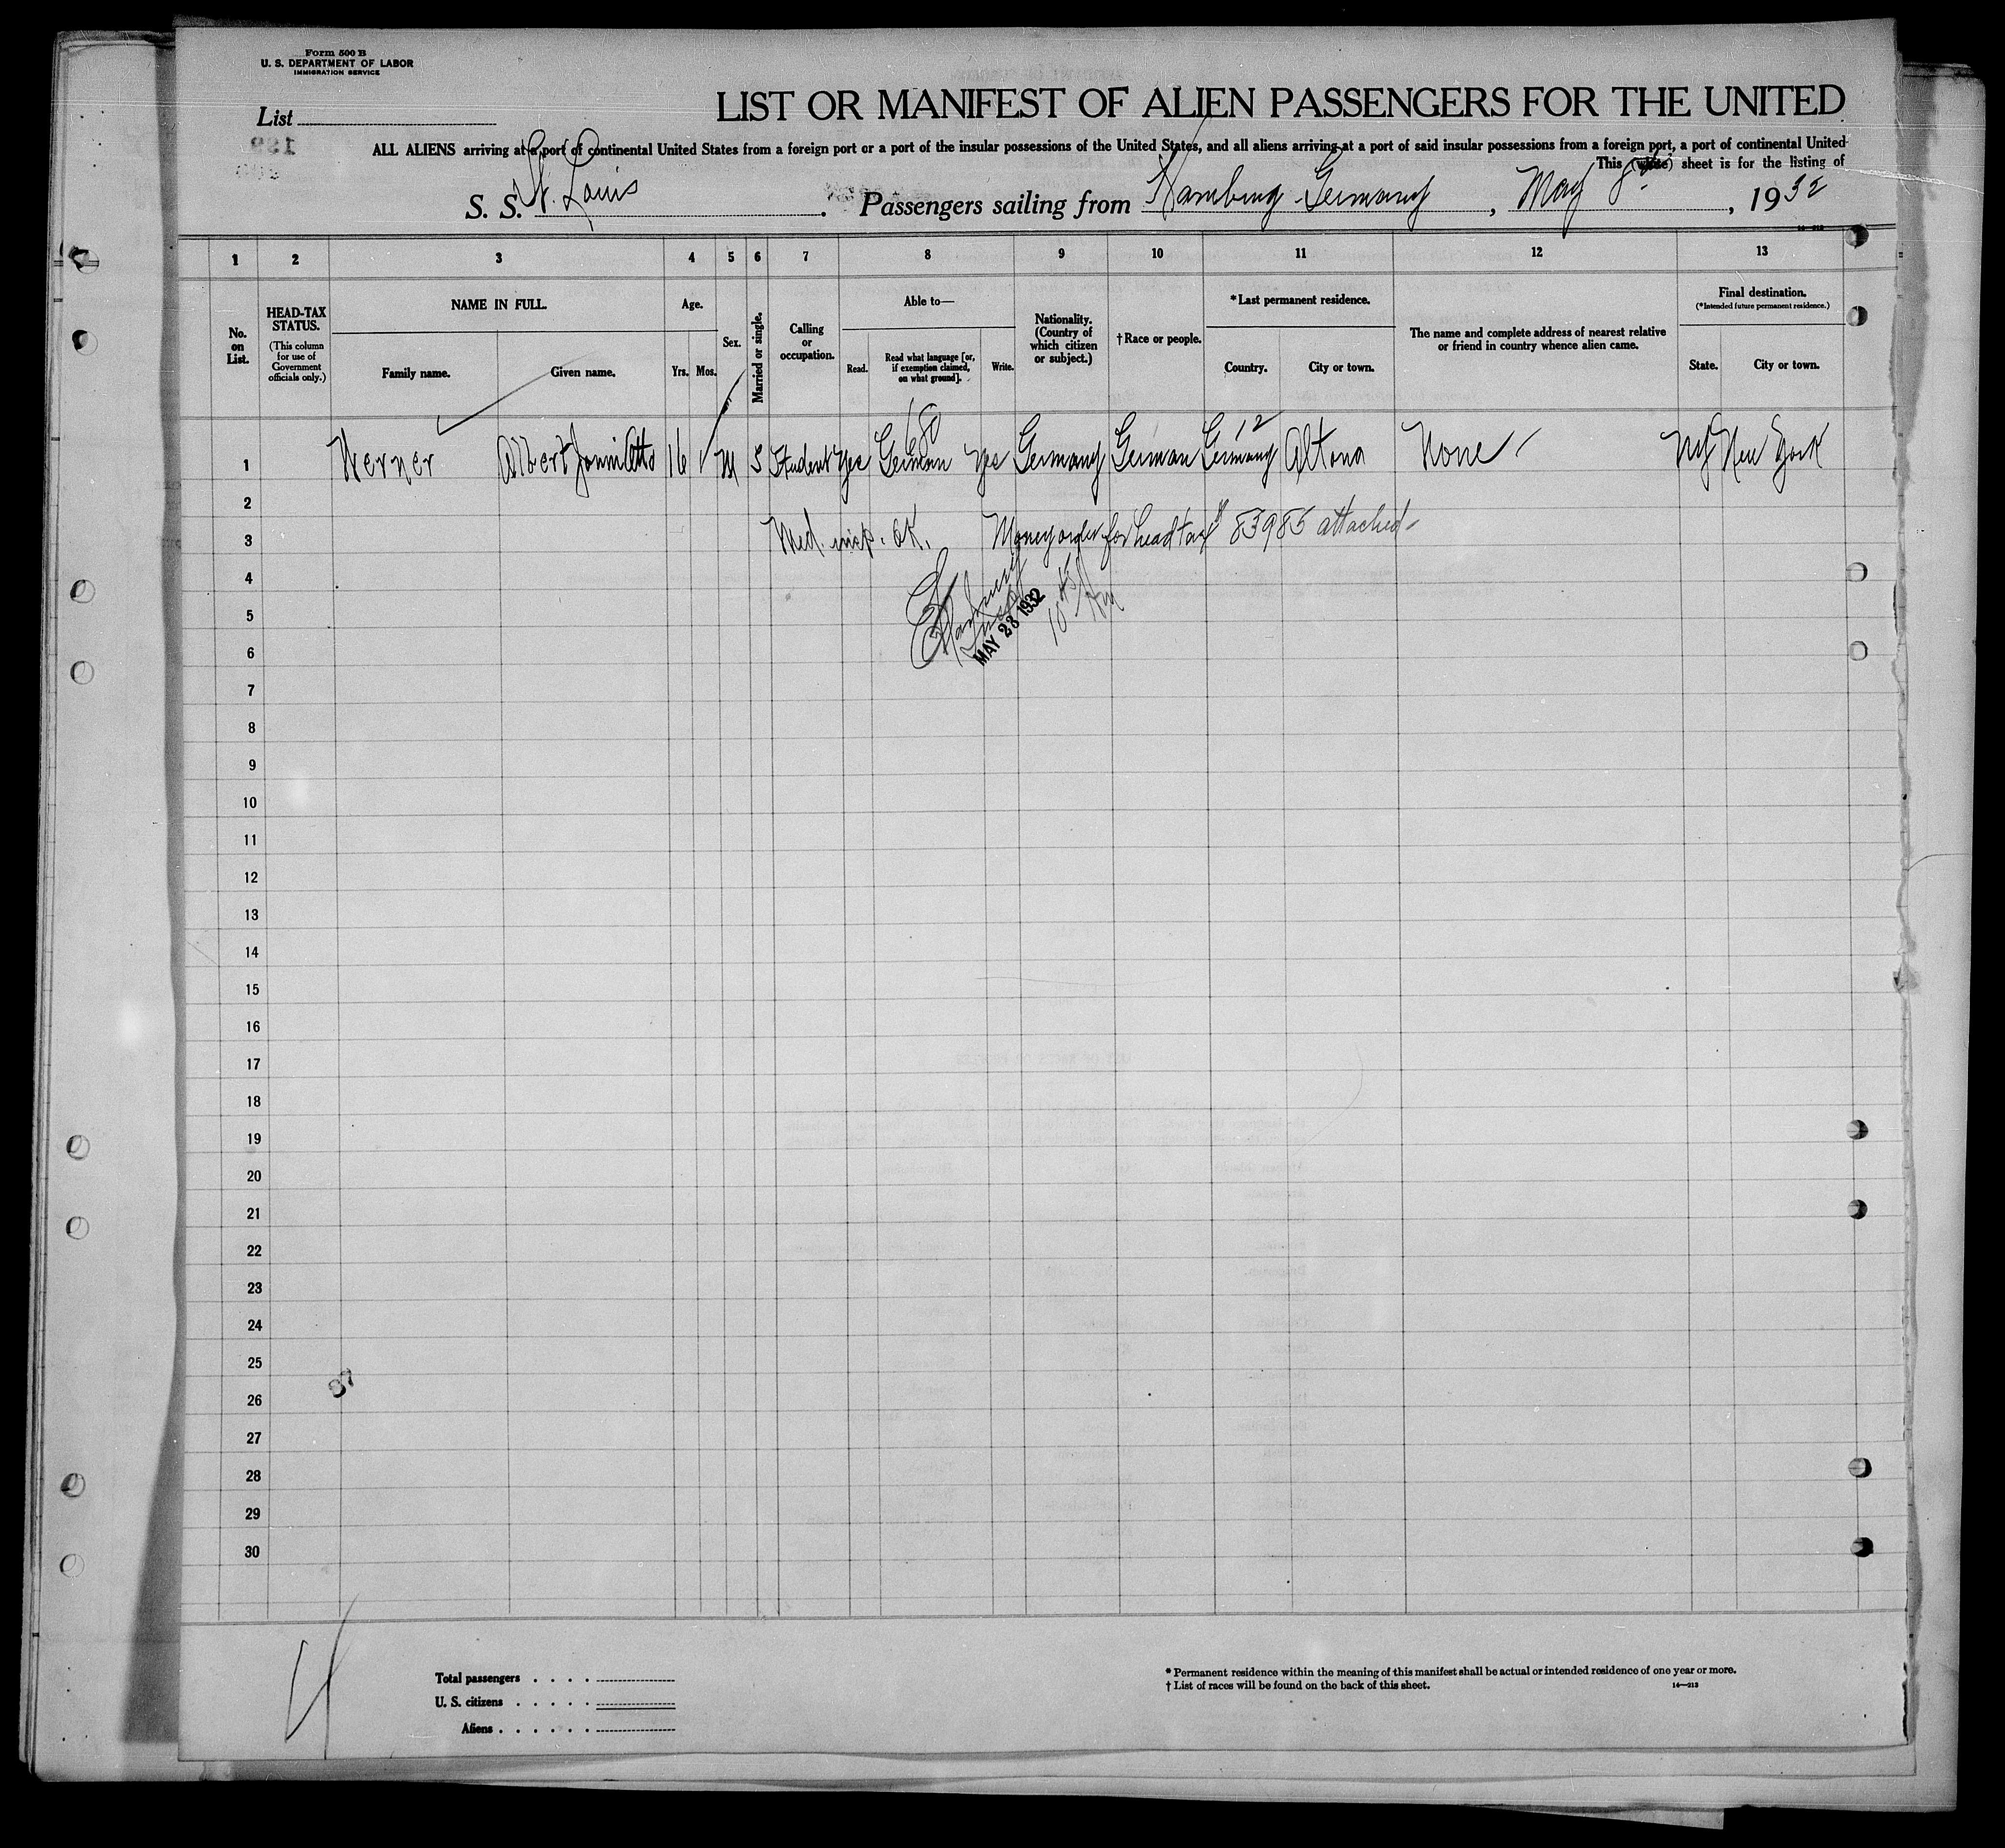 Form 500 B
U. S. DEPARTMENT OF LABOR
IMMIGRATION SERVICE
LIST OR MANIFEST OF ALIEN PASSENGERS FOR THE UNITED
List
ALL ALIENS arriving at a port of continental United States from a foreign port or a port of the insular possessions of the United States, and all aliens arriving at a port of said insular possessions from a foreign port, a port of continental United
This (white) sheet is for the listing of
S. S. St. Louis. Passengers sailing from Hamburg Germany, May 8, 1932
14—213
1 2 3 4 5 6 7 8 9 10 11 12 13
No. on List.
HEAD-TAX STATUS.
(This column for use of Government officials only.)
NAME IN FULL.
Family name. Given name.
Age.
Yrs. Mos.
Sex.
Married or single.
Calling or occupation.
Able to—
Read. Read what language [or, if exemption claimed, on what ground]. Write.
Nationality. (Country of which citizen or subject.)
† Race or people.
* Last permanent residence.
Country. City or town.
The name and complete address of nearest relative or friend in country whence alien came.
Final destination.
(*Intended future permanent residence.)
State. City or town.
680 12
1 Werner Albert Otto 16 M S Student Yes German Yes Germany German Germany Altona None NY New York
2
3 Med. insp. OK. Money order for head tax # 83985 attached
4
5
MAY 28 1932
6
7
8
9
10
11
12
13
14
15
16
17
18
19
20
21
22
23
24
25
26
27
28
29
30
Total passengers . . . .
U. S. citizens . . . . .
Aliens . . . . . .
* Permanent residence within the meaning of this manifest shall be actual or intended residence of one year or more.
† List of races will be found on the back of this sheet. 14—213